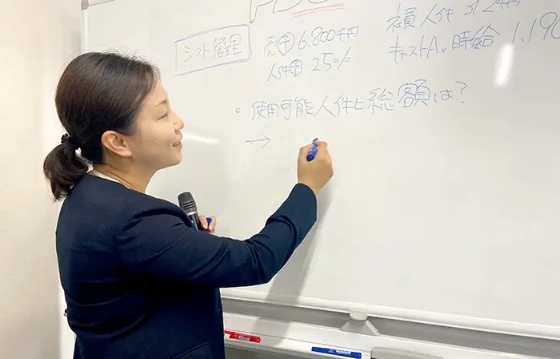 PDC
シフト管理
売㊤ 6.800千円
人件㊋ 25%
損人件 312千円
キャストAv時給 1.190
。使用可能人件ヒ総額は?
→